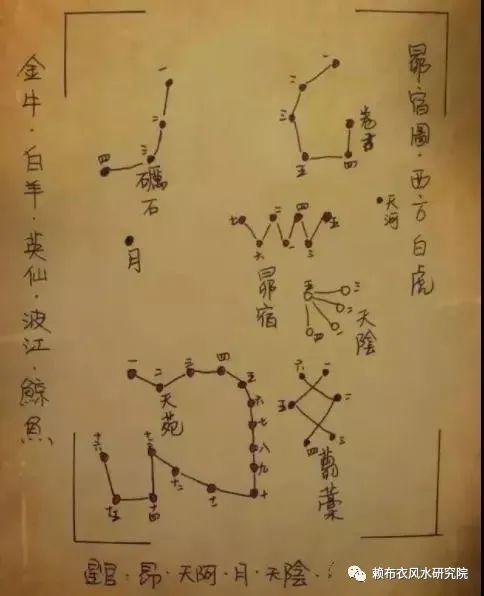 昴宿圖·西方白虎
金牛·白羊·英仙·波江·鯨魚
一
二
三
四
礪石
一
二
三
五
四
卷舌
天河
月
七
二
四
五
六
一
三
昴宿
五
三
二
一
四
天陰
一
二
三
四
五
六
七
八
九
十
十一
十二
十三
十四
十五
十六
天苑
六
一
五
二
四
三
芻藁
星官·昴·天阿·月·天陰·
赖布衣风水研究院